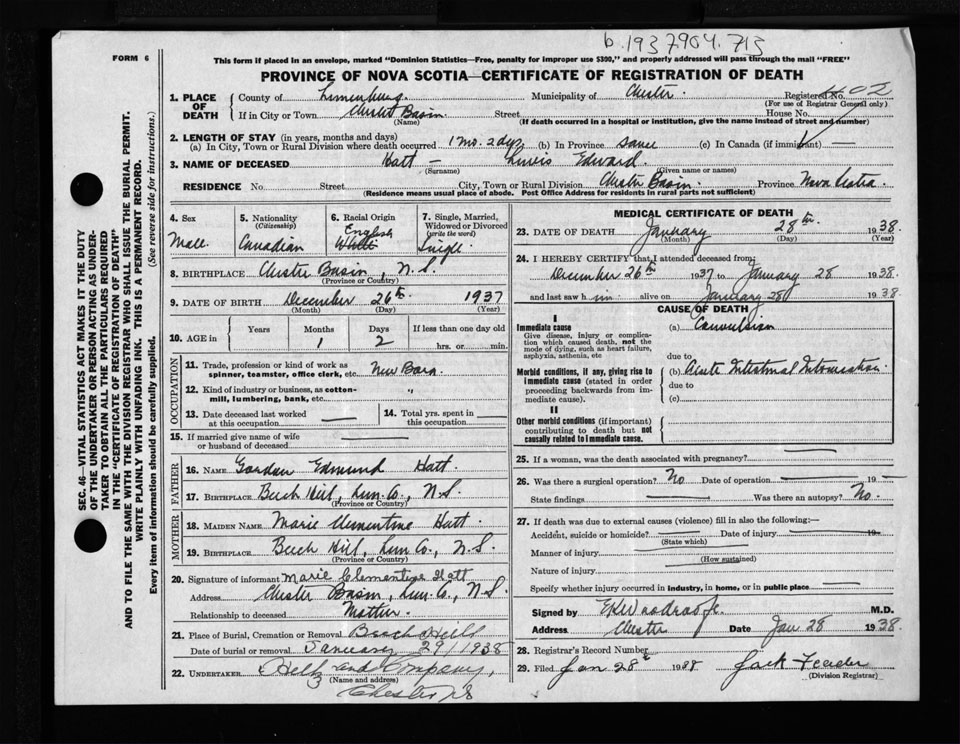 b.1937904.713
FORM 6
This form if placed in an envelope, marked "Dominion Statistics—Free, penalty for improper use $300," and properly addressed will pass through the mail "FREE"
PROVINCE OF NOVA SCOTIA—CERTIFICATE OF REGISTRATION OF DEATH
SEC. 46—VITAL STATISTICS ACT MAKES IT THE DUTY
OF THE UNDERTAKER OR PERSON ACTING AS UNDER-
TAKER TO OBTAIN ALL THE PARTICULARS REQUIRED
IN THE "CERTIFICATE OF REGISTRATION OF DEATH"
AND TO FILE THE SAME WITH THE DIVISION REGISTRAR WHO SHALL ISSUE THE BURIAL PERMIT.
WRITE PLAINLY WITH UNFADING INK. THIS IS A PERMANENT RECORD.
Every item of information should be carefully supplied. (See reverse side for instructions.)
1. PLACE OF DEATH
County of Lunenburg Municipality of Chester. Registered No. 402
(For use of Registrar General only)
If in City or Town Chester Basin Street House No.
(Name) (If death occurred in a hospital or institution, give the name instead of street and number)
2. LENGTH OF STAY (in years, months and days)
(a) In City, Town or Rural Division where death occurred 1 mo. 2 dys (b) In Province same (c) In Canada (if immigrant) —
3. NAME OF DECEASED Hatt — Lewis Edward.
(Surname) (Given name or names)
RESIDENCE No. Street City, Town or Rural Division Chester Basin Province Nova Scotia
(Residence means usual place of abode. Post Office Address for residents in rural parts not sufficient)
4. Sex 5. Nationality (Citizenship) 6. Racial Origin 7. Single, Married, Widowed or Divorced (write the word)
Male Canadian English White Single
8. BIRTHPLACE Chester Basin, N.S.
(Province or Country)
9. DATE OF BIRTH December 26th 1937
(Month) (Day) (Year)
10. AGE in Years Months Days If less than one day old
1 2 hrs. or min.
OCCUPATION
11. Trade, profession or kind of work as spinner, teamster, office clerk, etc. New Born
12. Kind of industry or business, as cotton-mill, lumbering, bank, etc. "
13. Date deceased last worked at this occupation — 14. Total yrs. spent in this occupation —
15. If married give name of wife or husband of deceased —
FATHER
16. NAME Gordon Edmund Hatt.
17. BIRTHPLACE Beech Hill, Lun. Co., N.S.
(Province or Country)
MOTHER
18. MAIDEN NAME Marie Clementine Hatt.
19. BIRTHPLACE Beech Hill, Lun Co., N.S.
(Province or Country)
20. Signature of informant Marie Clementine Hatt
Address Chester Basin, Lun. Co., N.S.
Relationship to deceased Mother.
21. Place of Burial, Cremation or Removal Beech Hill
Date of burial or removal January 29/1938
22. UNDERTAKER and Company,
(Name and address)
Chester NS
MEDICAL CERTIFICATE OF DEATH
23. DATE OF DEATH January 28th 1938.
(Month) (Day) (Year)
24. I HEREBY CERTIFY that I attended deceased from:
December 26th 1937 to January 28 1938.
and last saw him alive on January 28 1938
CAUSE OF DEATH
I
Immediate cause
Give disease, injury or complication which caused death, not the mode of dying, such as heart failure, asphyxia, asthenia, etc
(a) Convulsion
due to
Morbid conditions, if any, giving rise to immediate cause (stated in order proceeding backwards from immediate cause).
(b) Acute Intestinal Intoxication.
due to
(c)
II
Other morbid conditions (if important) contributing to death but not causally related to immediate cause.
25. If a woman, was the death associated with pregnancy? —
26. Was there a surgical operation? No Date of operation — 19 —
State findings — Was there an autopsy? No.
27. If death was due to external causes (violence) fill in also the following:—
Accident, suicide or homicide? — Date of injury — 19
(State which)
Manner of injury —
(How sustained)
Nature of injury —
Specify whether injury occurred in Industry, in home, or in public place —
Signed by M.D.
Address Chester Date Jan 28 1938.
28. Registrar's Record Number
29. Filed Jan 28th 1938 Jack
(Division Registrar)